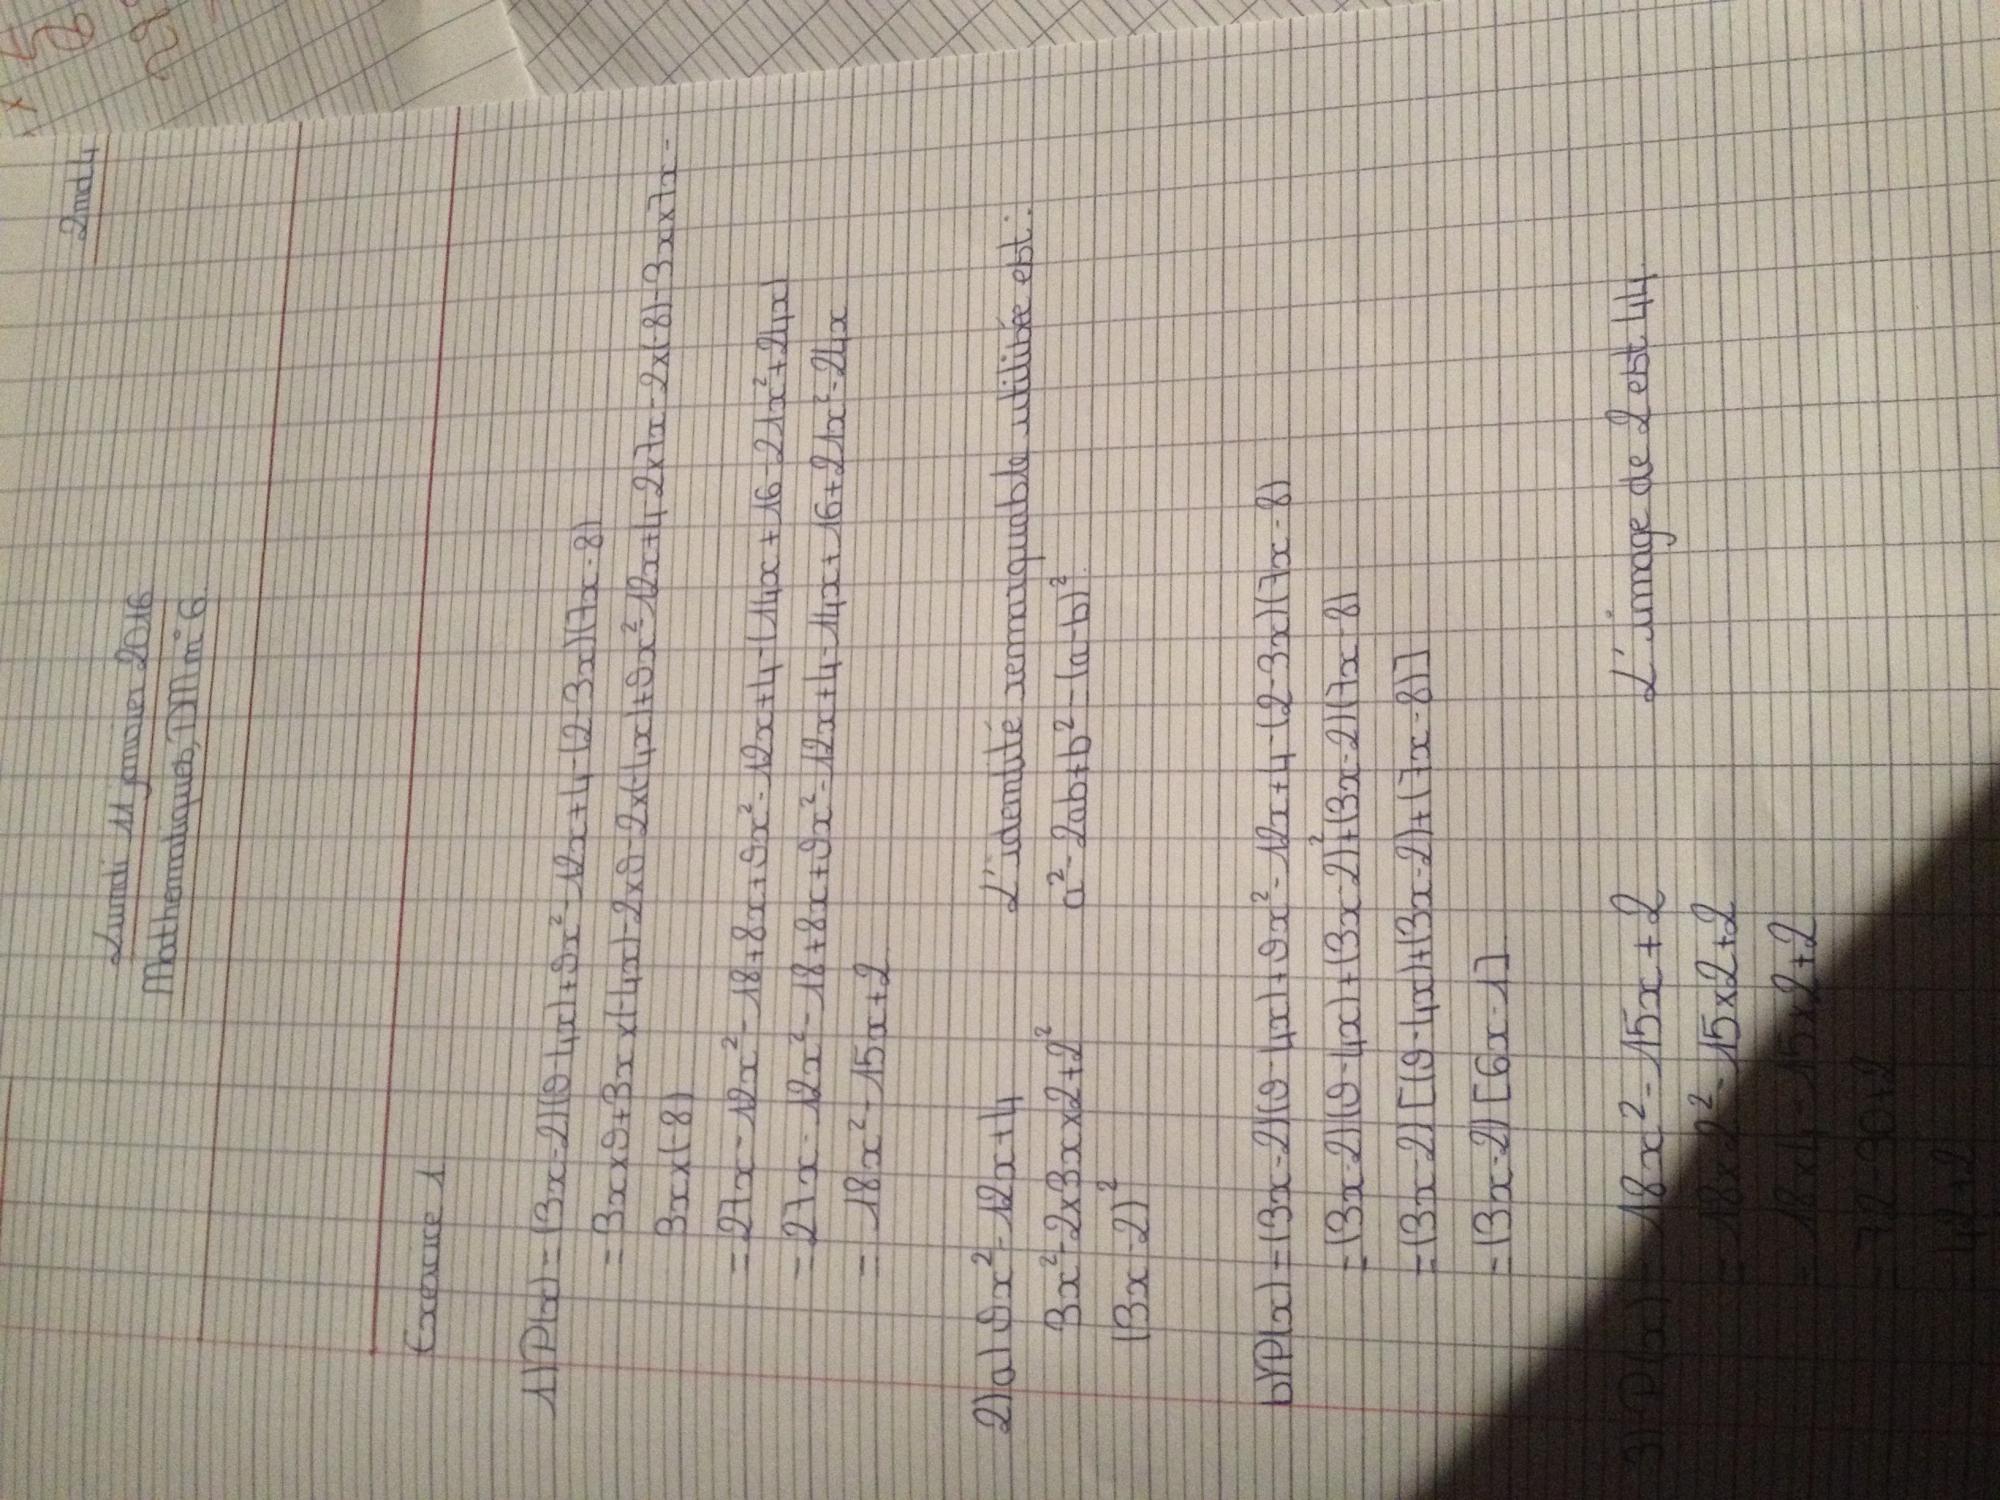 2nd4
Lundi 11 janvier 2016
Mathématiques, DM n°6
Exercice 1
1) P(x) = (3x-2)(9-4x)+9x²-12x+4-(2-3x)(7x-8)
= 3x×9+3x×(-4x)-2×9-2×(-4x)+9x²-12x+4-2×7x-2×(-8)-3x×7x-
3x×(-8)
= 27x-12x²-18+8x+9x²-12x+4-(14x+16-21x²+24x)
= 27x-12x²-18+8x+9x²-12x+4-14x+16+21x²-24x
= 18x²-15x+2
2) a) 9x²-12x+4 L'identité remarquable utilisée est:
3x²-2×3x×2+2² a²-2ab+b²=(a-b)²
(3x-2)²
b) P(x) = (3x-2)(9-4x)+9x²-12x+4-(2-3x)(7x-8)
= (3x-2)(9-4x)+(3x-2)²+(3x-2)(7x-8)
= (3x-2)[(9-4x)+(3x-2)+(7x-8)]
= (3x-2)[6x-1]
3) P(x) = 18x²-15x+2 L'image de 2 est 44.
= 18×2²-15×2+2
= 18×4-15×2+2
= 72-30+2
= 42+2